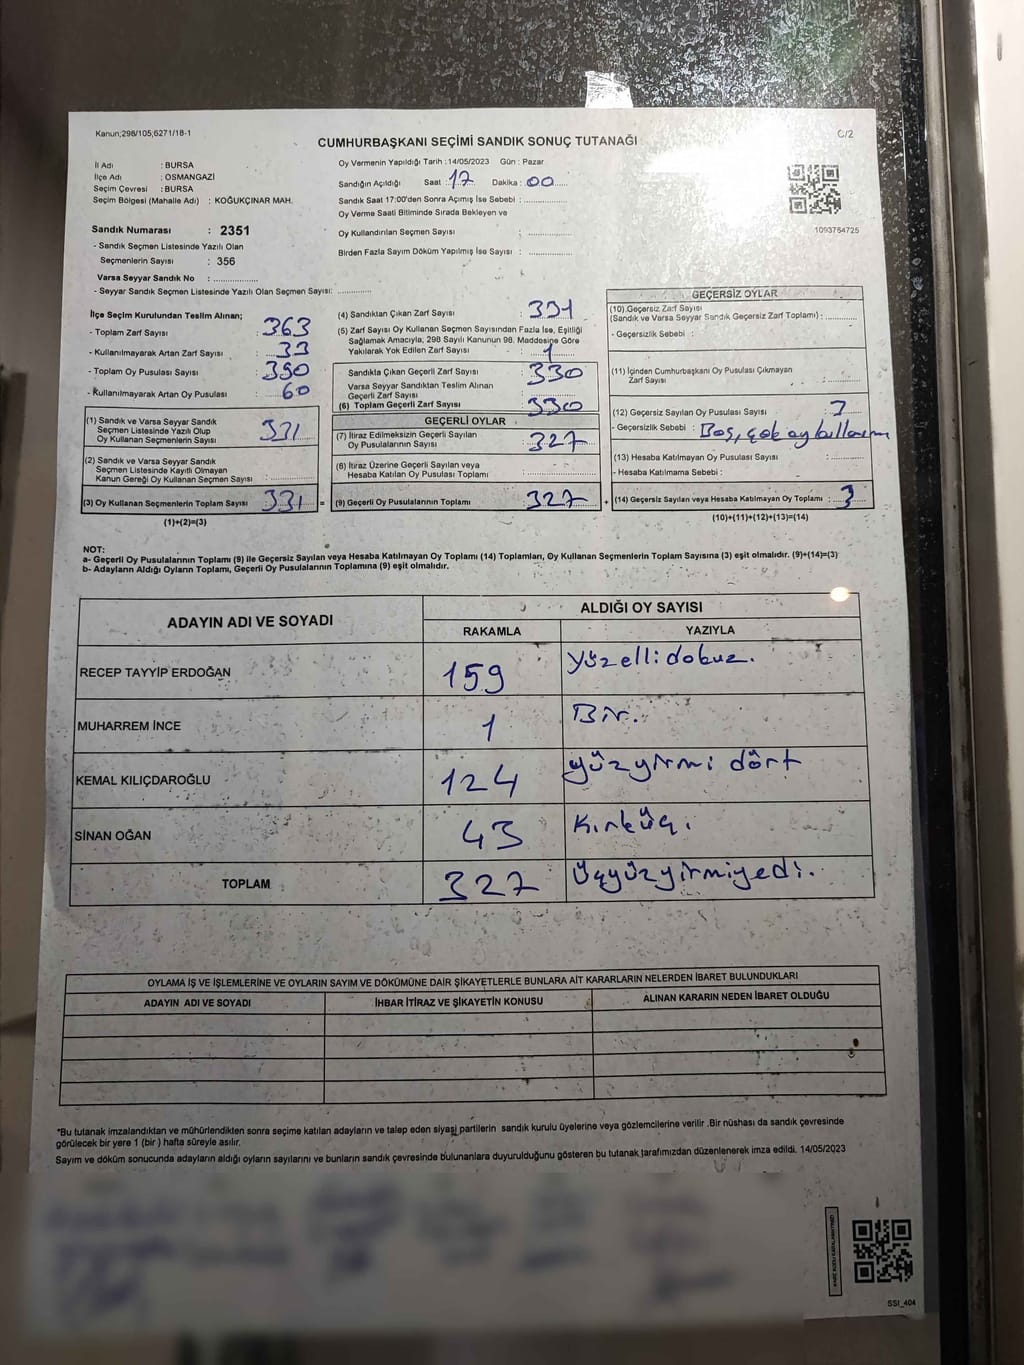 Kanun;298/105;6271/18-1
CUMHURBAŞKANI SEÇİMİ SANDIK SONUÇ TUTANAĞI
C/2
İl Adı : BURSA
İlçe Adı : OSMANGAZİ
Seçim Çevresi : BURSA
Seçim Bölgesi (Mahalle Adı) : KOĞUKÇINAR MAH.
Sandık Numarası : 2351
- Sandık Seçmen Listesinde Yazılı Olan
Seçmenlerin Sayısı : 356
Varsa Seyyar Sandık No : ..............
- Seyyar Sandık Seçmen Listesinde Yazılı Olan Seçmen Sayısı: ............
Oy Vermenin Yapıldığı Tarih : 14/05/2023 Gün : Pazar
Sandığın Açıldığı Saat : 17 Dakika : 00
Sandık Saat 17:00'den Sonra Açımış İse Sebebi : ..............
Oy Verme Saati Bitiminde Sırada Bekleyen ve
Oy Kullandırılan Seçmen Sayısı : ..............
Birden Fazla Sayım Döküm Yapılmış İse Sayısı : ..............
1093764725
İlçe Seçim Kurulundan Teslim Alınan;
- Toplam Zarf Sayısı : 363
- Kullanılmayarak Artan Zarf Sayısı : 33
- Toplam Oy Pusulası Sayısı : 390
- Kullanılmayarak Artan Oy Pusulası : 60
(1) Sandık ve Varsa Seyyar Sandık
Seçmen Listesinde Yazılı Olup
Oy Kullanan Seçmenlerin Sayısı : 331
(2) Sandık ve Varsa Seyyar Sandık
Seçmen Listesinde Kayıtlı Olmayan
Kanun Gereği Oy Kullanan Seçmen Sayısı : ............
(3) Oy Kullanan Seçmenlerin Toplam Sayısı : 331 =
(1)+(2)=(3)
(4) Sandıktan Çıkan Zarf Sayısı : 331
(5) Zarf Sayısı Oy Kullanan Seçmen Sayısından Fazla İse, Eşitliği
Sağlamak Amacıyla, 298 Sayılı Kanunun 98. Maddesine Göre
Yakılarak Yok Edilen Zarf Sayısı : 1
Sandıkta Çıkan Geçerli Zarf Sayısı : 330
Varsa Seyyar Sandıktan Teslim Alınan
Geçerli Zarf Sayısı : ............
(6) Toplam Geçerli Zarf Sayısı : 330
GEÇERLİ OYLAR
(7) İtiraz Edilmeksizin Geçerli Sayılan
Oy Pusulalarının Sayısı : 327
(8) İtiraz Üzerine Geçerli Sayılan veya
Hesaba Katılan Oy Pusulası Toplamı : ............
(9) Geçerli Oy Pusulalarının Toplamı : 327 +
GEÇERSİZ OYLAR
(10) Geçersiz Zarf Sayısı
(Sandık ve Varsa Seyyar Sandık Geçersiz Zarf Toplamı) : .........
- Geçersizlik Sebebi :
(11) İçinden Cumhurbaşkanı Oy Pusulası Çıkmayan
Zarf Sayısı : .........
(12) Geçersiz Sayılan Oy Pusulası Sayısı : 3
- Geçersizlik Sebebi : Boş, çok oy kullanım
(13) Hesaba Katılmayan Oy Pusulası Sayısı : .........
- Hesaba Katılmama Sebebi :
(14) Geçersiz Sayılan veya Hesaba Katılmayan Oy Toplamı : 3
(10)+(11)+(12)+(13)=(14)
NOT:
a- Geçerli Oy Pusulalarının Toplamı (9) ile Geçersiz Sayılan veya Hesaba Katılmayan Oy Toplamı (14) Toplamları, Oy Kullanan Seçmenlerin Toplam Sayısına (3) eşit olmalıdır. (9)+(14)=(3)
b- Adayların Aldığı Oyların Toplamı, Geçerli Oy Pusulalarının Toplamına (9) eşit olmalıdır.
ADAYIN ADI VE SOYADI
ALDIĞI OY SAYISI
RAKAMLA YAZIYLA
RECEP TAYYİP ERDOĞAN 159 yüzellidokuz.
MUHARREM İNCE 1 Bir.
KEMAL KILIÇDAROĞLU 124 yüzyirmi dört
SİNAN OĞAN 43 Kırküç.
TOPLAM 327 üçyüzyirmiyedi.
OYLAMA İŞ VE İŞLEMLERİNE VE OYLARIN SAYIM VE DÖKÜMÜNE DAİR ŞİKAYETLERLE BUNLARA AİT KARARLARIN NELERDEN İBARET BULUNDUKLARI
ADAYIN ADI VE SOYADI İHBAR İTİRAZ VE ŞİKAYETİN KONUSU ALINAN KARARIN NEDEN İBARET OLDUĞU
*Bu tutanak imzalandıktan ve mühürlendikten sonra seçime katılan adayların ve talep eden siyasi partilerin sandık kurulu üyelerine veya gözlemcilerine verilir .Bir nüshası da sandık çevresinde
görülecek bir yere 1 (bir ) hafta süreyle asılır.
Sayım ve döküm sonucunda adayların aldığı oyların sayılarını ve bunların sandık çevresinde bulunanlara duyurulduğunu gösteren bu tutanak tarafımızdan düzenlenerek imza edildi. 14/05/2023
SSI_404